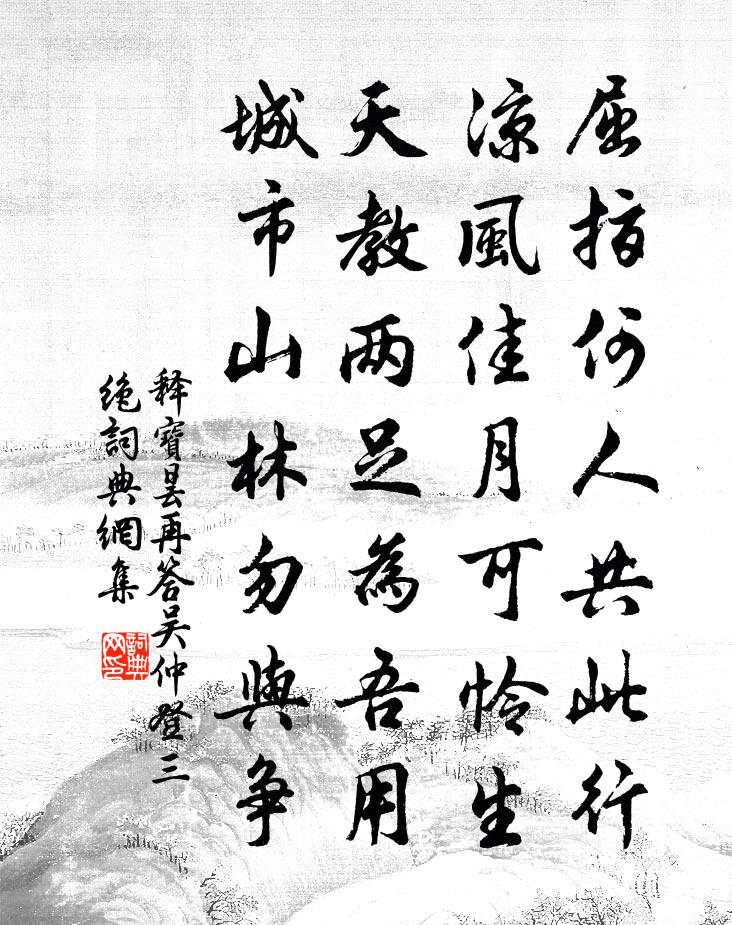 屈指何人共此行
涼風佳月可怜生
天教两足為吾用
城市山林勿與争
释寶昙再答吴仲登三
絶詞典網集
詞典网印